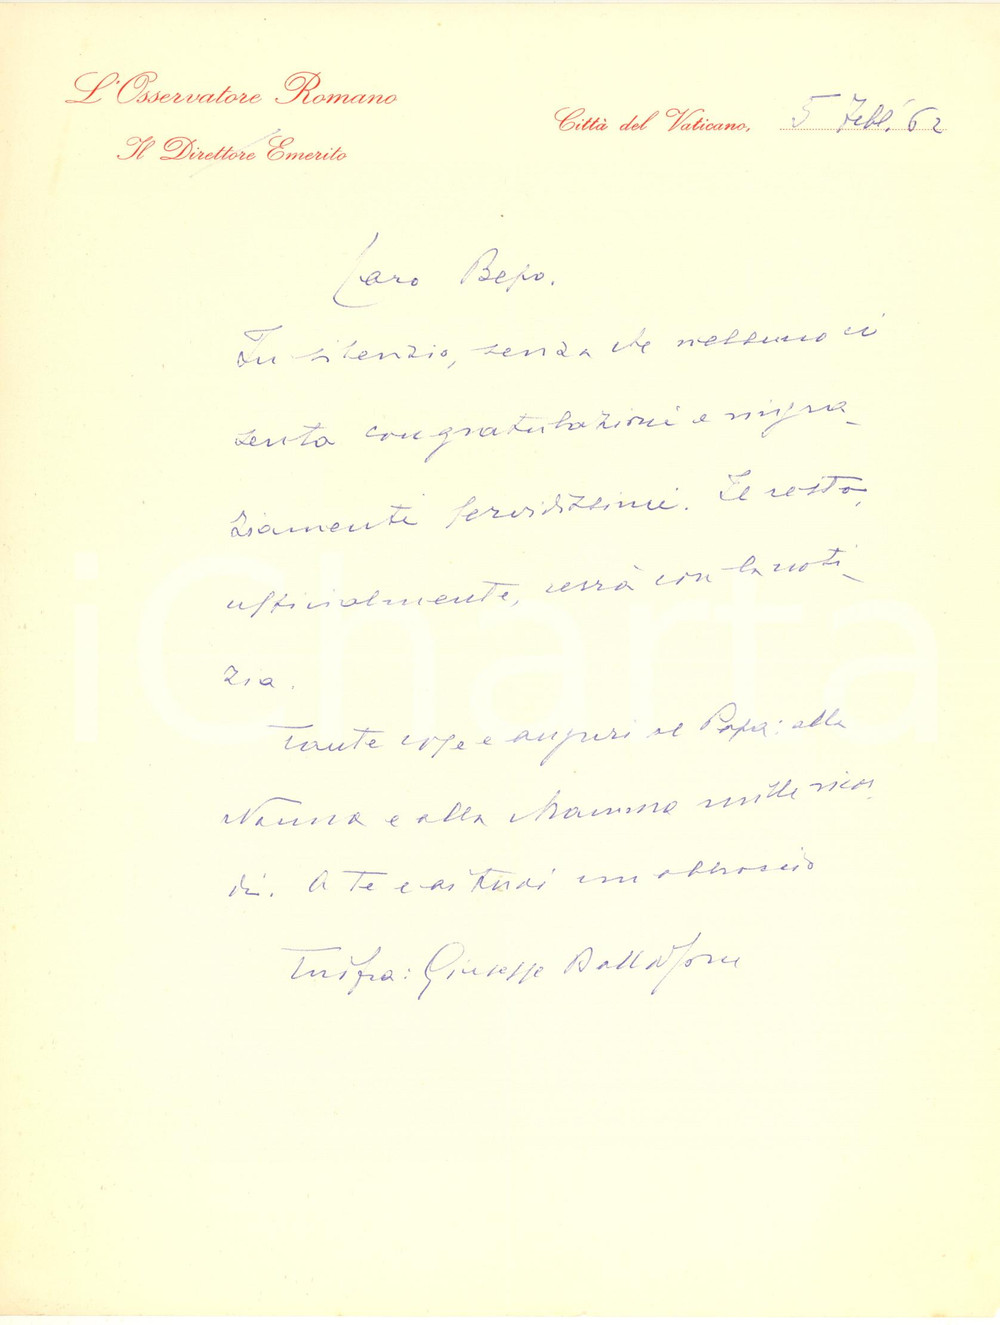 L'Osservatore Romano
Il Direttore Emerito
Città del Vaticano, 5 Febb. '62
Caro Bepo.
In silenzio, senza che nessuno ci
senta congratulazioni e ringra-
ziamenti fervidissimi. Il resto,
ufficialmente, verrà con la noti-
zia.
Tante cose e auguri al Papà: alla
Nonna e alla Mamma mille ricor-
di. A te e ai tuoi un abbraccio
Giuseppe Dalla Torre
iCharta